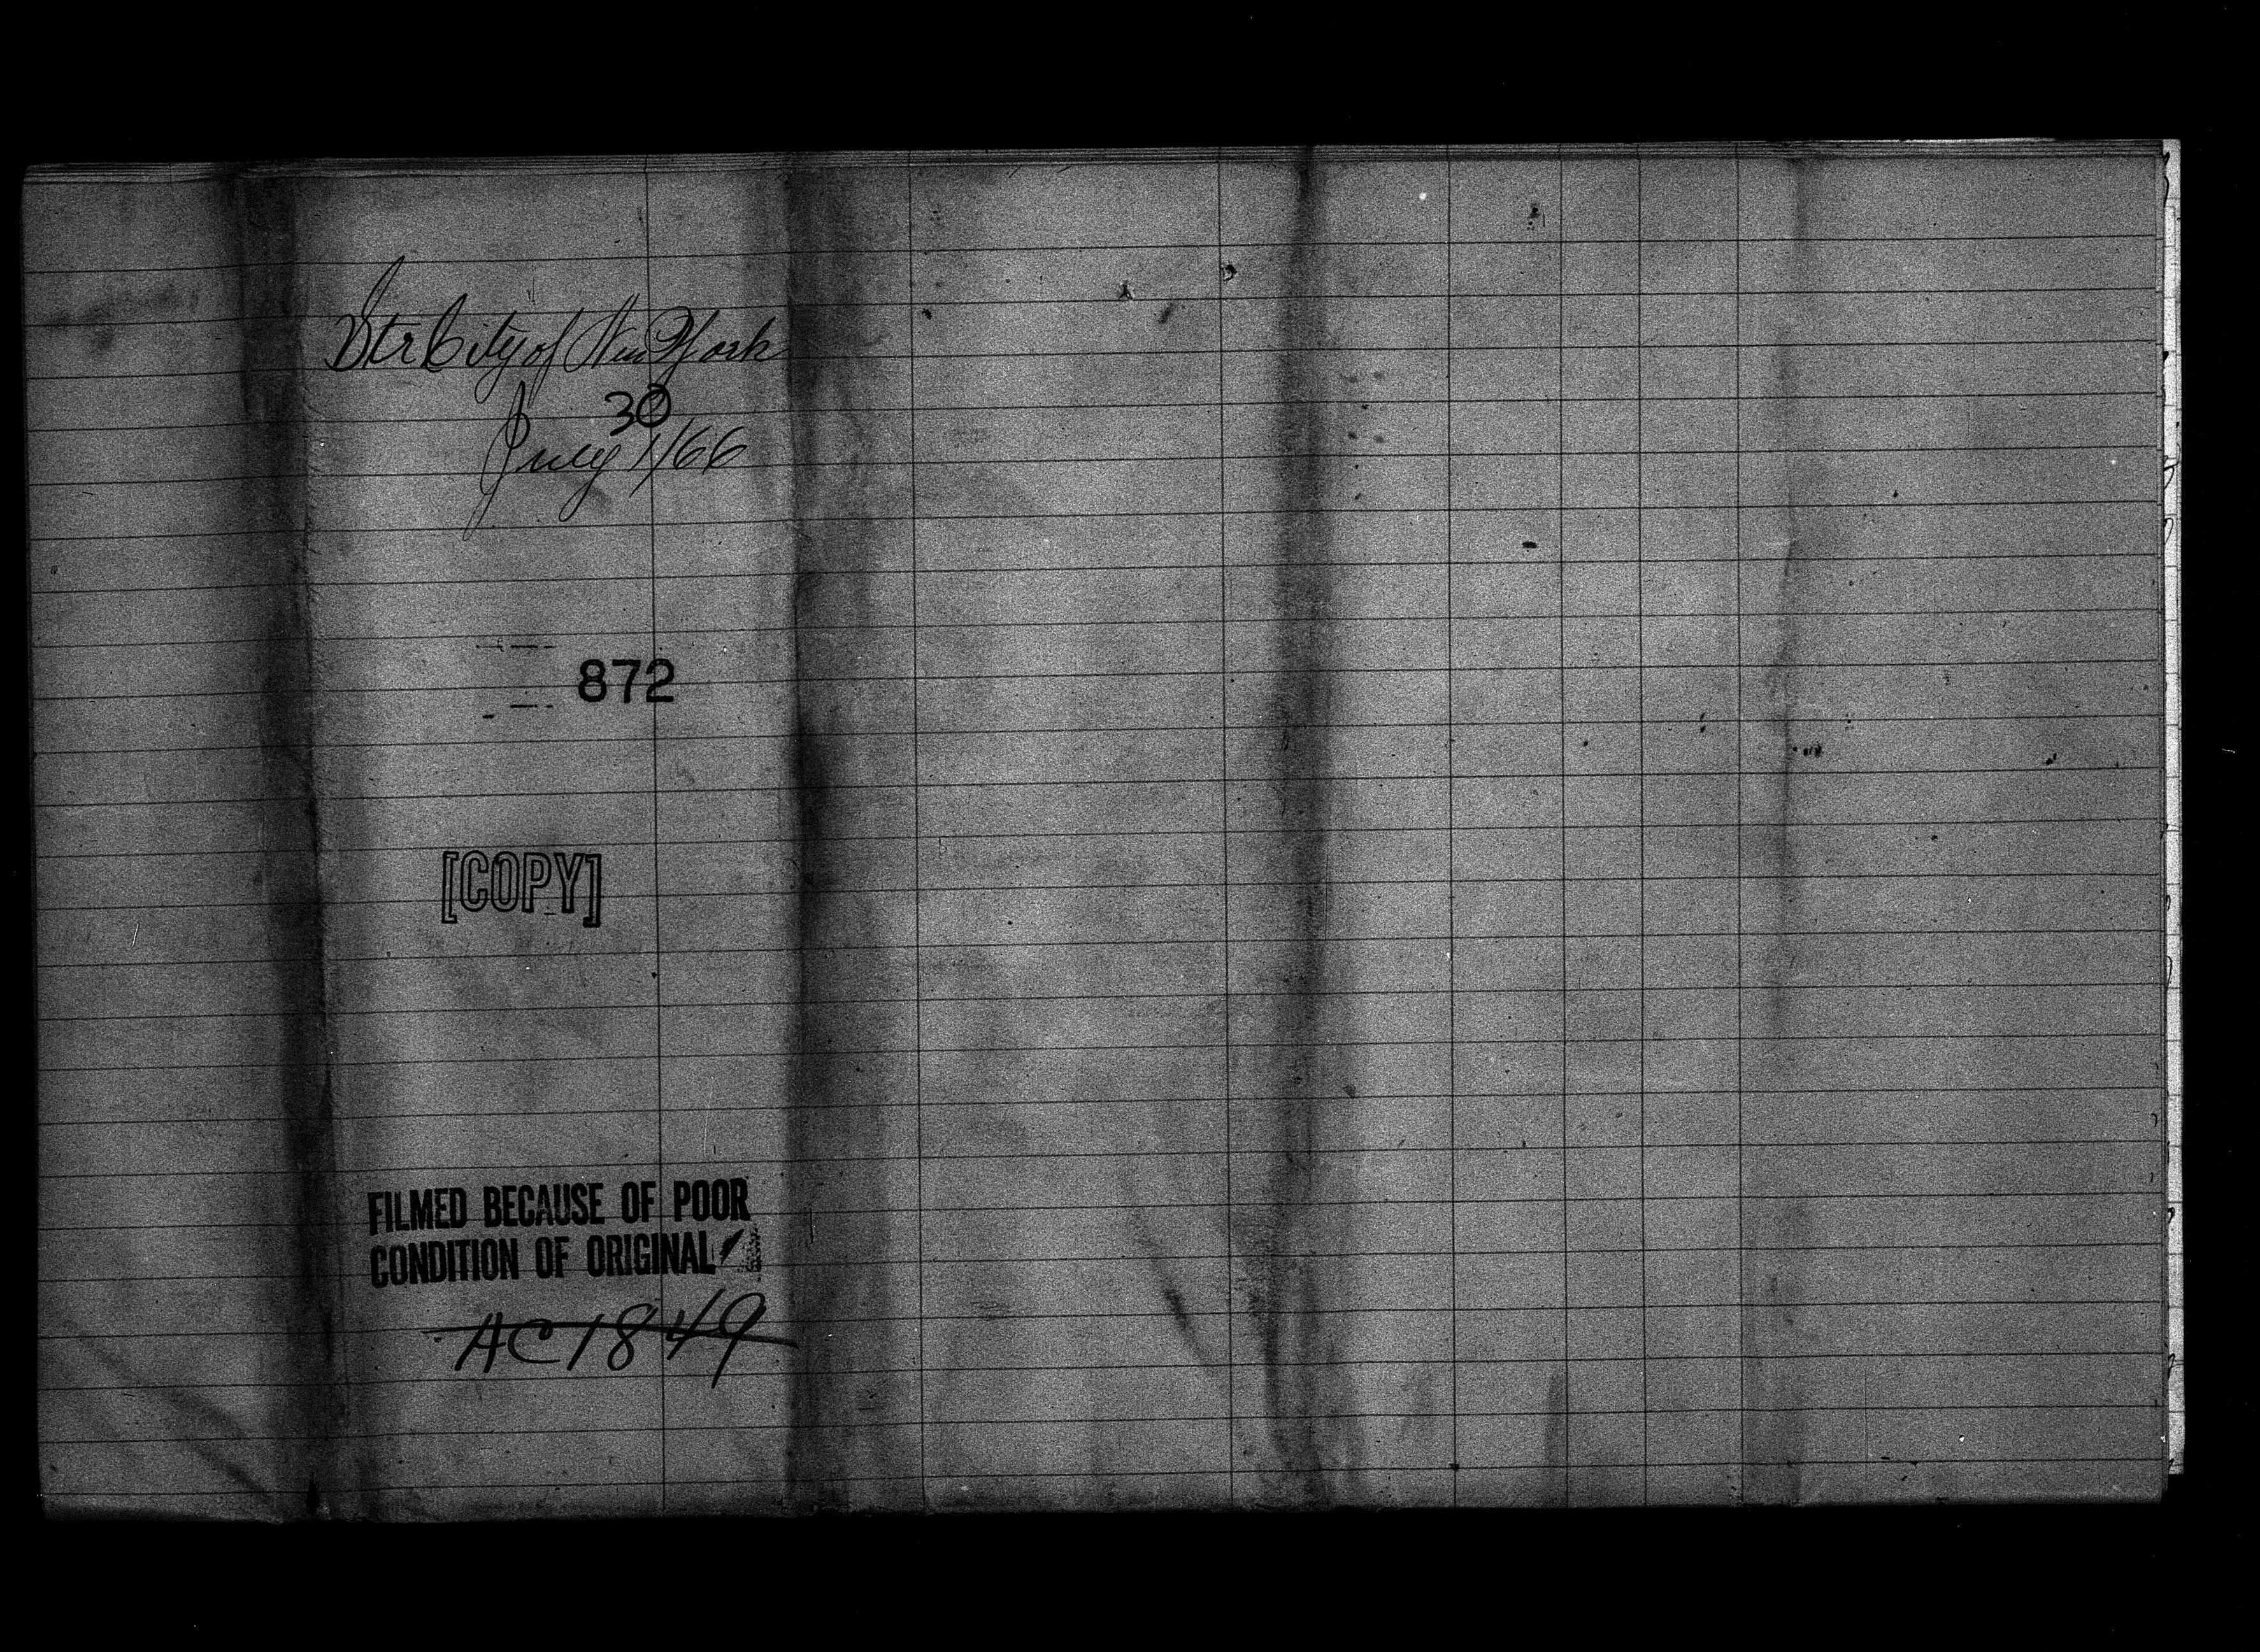 Str City of New York
30
July 1/66
872
[COPY]
FILMED BECAUSE OF POOR
CONDITION OF ORIGINAL
AC1849